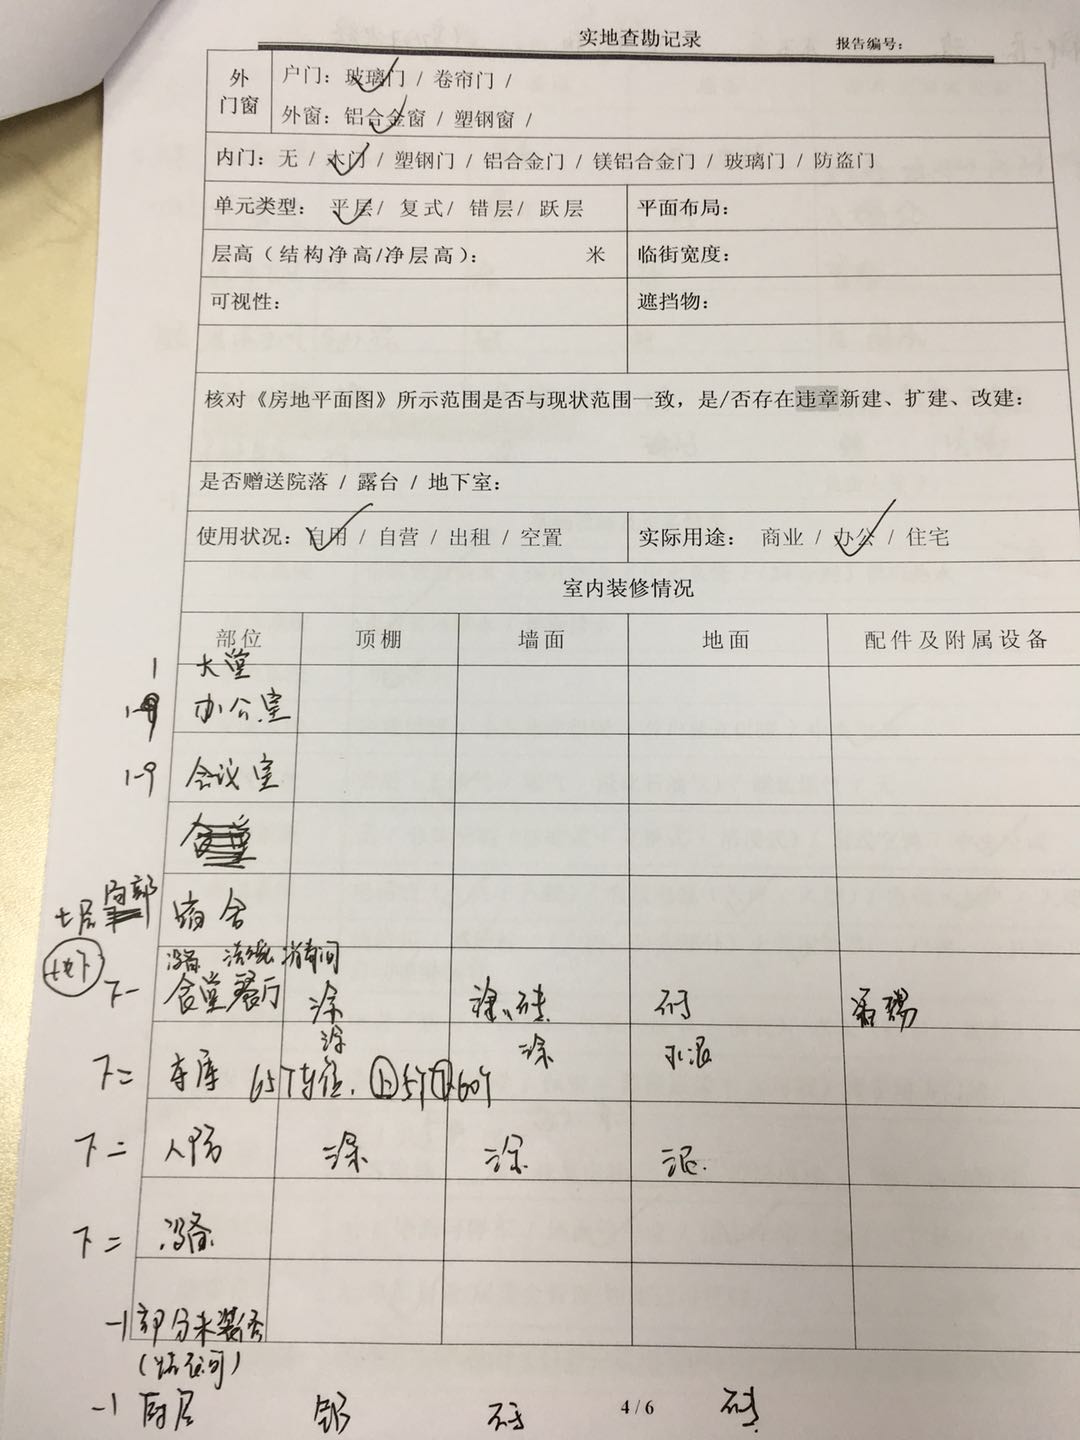 实地查勘记录 报告编号：
外门窗 户门：玻璃门 / 卷帘门 /
外窗：铝合金窗 / 塑钢窗 /
内门：无 / 木门 / 塑钢门 / 铝合金门 / 镁铝合金门 / 玻璃门 / 防盗门
单元类型： 平层/ 复式/ 错层/ 跃层 平面布局：
层高（结构净高/净层高）： 米 临街宽度：
可视性： 遮挡物：
核对《房地平面图》所示范围是否与现状范围一致，是/否存在违章新建、扩建、改建：
是否赠送院落 / 露台 / 地下室：
使用状况：自用 / 自营 / 出租 / 空置 实际用途： 商业 / 办公 / 住宅
室内装修情况
部位 顶棚 墙面 地面 配件及附属设备
1 大堂
1-9 办公室
1-9 会议室
宿舍
地下
设备
下一 食堂餐厅 涂 砖 砖
涂 涂 水泥
下二 车库 65个车位，上5个下60个
下二 人防 涂 涂 泥
下二 设备
-1 部分未装修
-1 厨房 铝 砖 砖
4 / 6